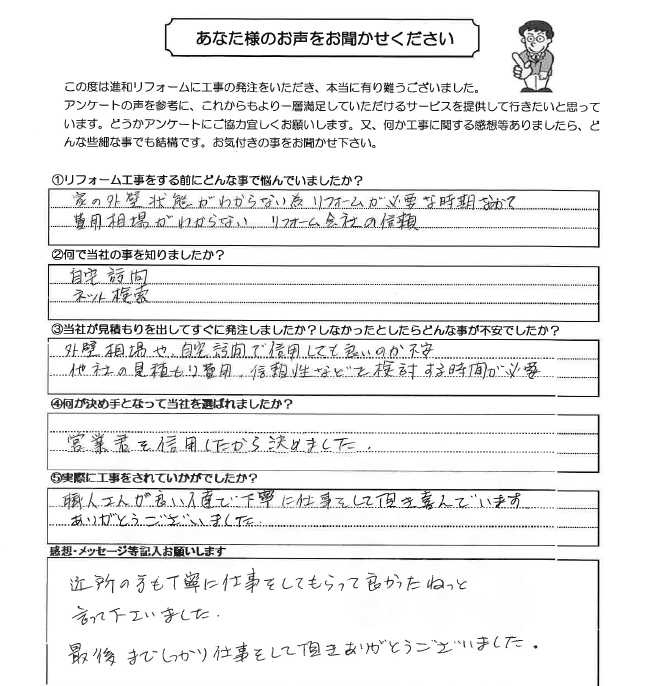 あなた様のお声をお聞かせください
この度は進和リフォームに工事の発注をいただき、本当に有り難うございました。
アンケートの声を参考に、これからもより一層満足していただけるサービスを提供して行きたいと思って
います。どうかアンケートにご協力宜しくお願いします。又、何か工事に関する感想等ありましたら、ど
んな些細な事でも結構です。お気付きの事をお聞かせ下さい。
①リフォーム工事をする前にどんな事で悩んでいましたか？
家の外壁状態がわからない為リフォームが必要な時期なのか
費用相場がわからない リフォーム会社の信頼
②何で当社の事を知りましたか？
自宅訪問
ネット検索
③当社が見積もりを出してすぐに発注しましたか？しなかったとしたらどんな事が不安でしたか？
外壁相場や、自宅訪問で信用しても良いのか不安
他社の見積もり費用、信頼性などで検討する時間が必要
④何が決め手となって当社を選ばれましたか？
営業者を信用したから決めました.
⑤実際に工事をされていかがでしたか？
職人さんが良い 丁寧に仕事をして頂き喜んでいます
ありがとうございました.
感想・メッセージ等記入お願いします
近所の方も丁寧に仕事をしてもらって良かったねっと
言って下さいました.
最後までしっかり仕事をして頂きありがとうございました.